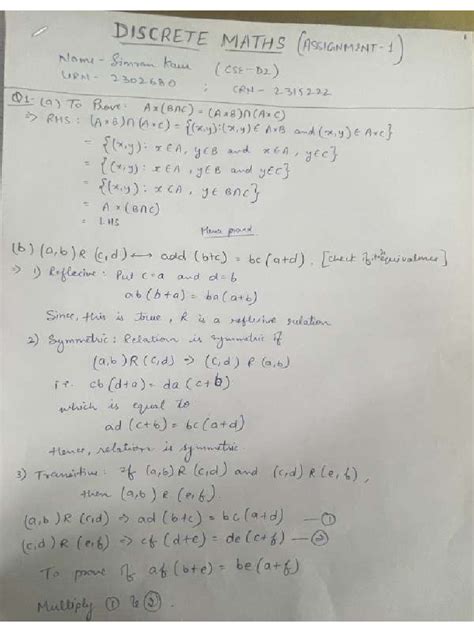 DISCRETE MATHS (ASSIGNMENT-1)
Name - Simran Kaur (CSE-D2)
URN - 2302680 ; CRN - 2315222
Q1- (a) To Prove: A×(B∩C) = (A×B)∩(A×C)
⇒ RHS: (A×B)∩(A×C) = {(x,y):(x,y)∈ A×B and (x,y)∈ A×C}
= {(x,y): x∈A, y∈B and x∈A, y∈C}
= {(x,y): x∈A, y∈B and y∈C}
= {(x,y): x∈A, y∈B∩C}
= A×(B∩C)
= LHS
Hence proved
(b) (a,b) R (c,d) ⟷ add(b+c) = bc(a+d). [check if equivalence]
⇒ 1) Reflexive: Put c=a and d=b
ab(b+a) = ba(a+b)
Since, this is true, R is a reflexive relation
2) Symmetric: Relation is symmetric if
(a,b) R (c,d) ⇒ (c,d) R (a,b)
i.e. cb(d+a) = da(c+b)
which is equal to
ad(c+b) = bc(a+d)
Hence, relation is symmetric.
3) Transitive: If (a,b) R (c,d) and (c,d) R (e,f),
then (a,b) R (e,f).
(a,b) R (c,d) ⇒ ad(b+c) = bc(a+d) —①
(c,d) R (e,f) ⇒ cf(d+e) = de(c+f) —②
To prove if af(b+e) = be(a+f)
Multiply ① & ②.